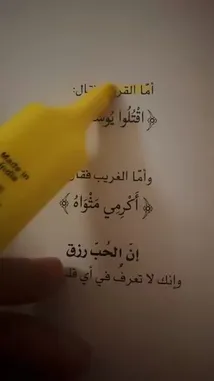 أمّا القريب فقال:
﴿ اقْتُلُوا يُوسُفَ ﴾
وأمّا الغريب فقال
﴿ أَكْرِمِي مَثْوَاهُ ﴾
إنّ الحُبّ رزق
وإنك لا تعرفُ في أي
Made in